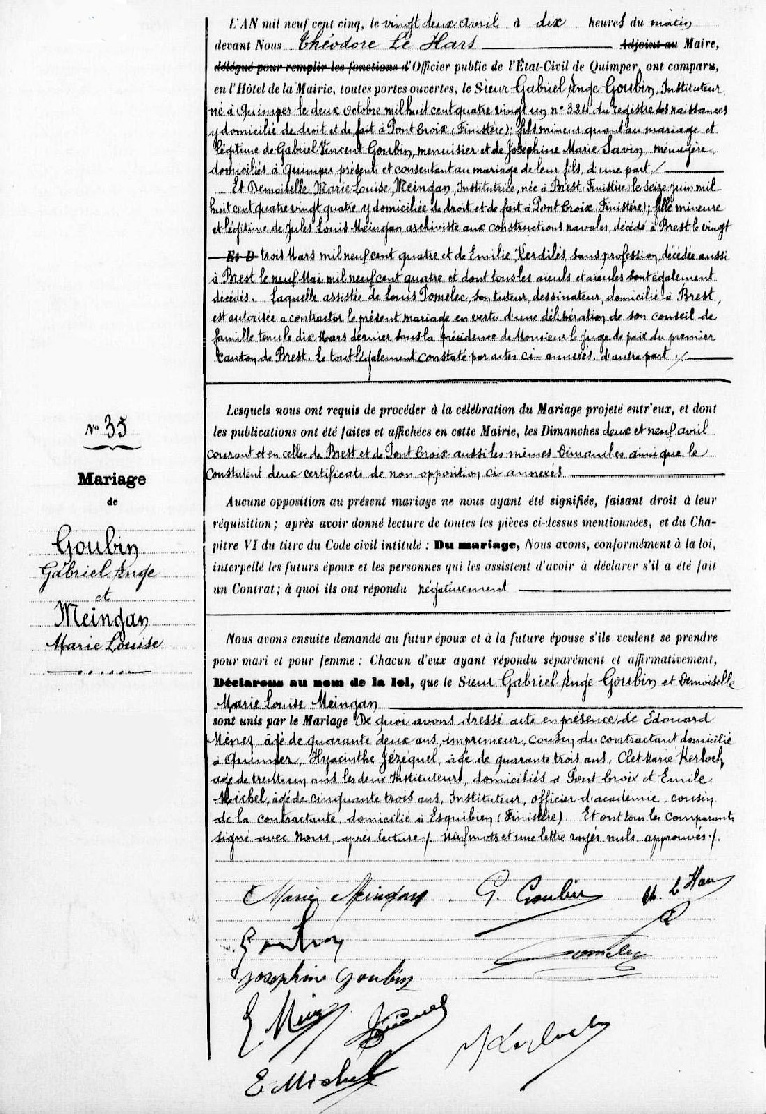 L'AN mil neuf cent cinq, le vingt deux avril à dix heures du matin
devant Nous Théodore Le Hars Adjoint au Maire,
délégué pour remplir les fonctions d'Officier public de l'État-Civil de Quimper, ont comparu,
en l'Hôtel de la Mairie, toutes portes ouvertes, le Sieur Gabriel Ange Goubin, Instituteur
né à Quimper le deux octobre mil huit cent quatre vingt un n° 324 du registre des naissances
y domicilié de droit et de fait à Pont Croix (Finistère); fils mineur quant au mariage et
légitime de Gabriel Vincent Goubin, menuisier et de Josephine Marie Savin, ménagère
domiciliés à Quimper présents et consentant au mariage de leur fils, d'une part /
Et Demoiselle Marie Louise Meingan, Institutrice, née à Brest Finistère le seize juin mil
huit cent quatre vingt quatre y domiciliée de droit et de fait à Pont Croix Finistère); fille mineure
et légitime de Jules Louis Meingan archiviste aux constructions navales décédé à Brest le vingt
Et D trois Mars mil neuf cent quatre et de Emilie Kerdilès sans profession décédée aussi
à Brest le neuf Mai mil neuf cent quatre et dont tous les aïeuls et aïeules sont également
décédés. Laquelle assistée de Louis Pomelec, son tuteur, dessinateur, domicilié à Brest,
est autorisée a contracter le présent mariage en vertu d'une délibération de son conseil de
famille tenu le dix Mars dernier sous la présidence de Monsieur le juge de paix du premier
Canton de Brest. le tout légalement constaté par actes ci-annexés, d'autre part /
Lesquels nous ont requis de procéder à la célébration du Mariage projeté entr'eux, et dont
les publications ont été faites et affichées en cette Mairie, les Dimanches deux et neuf avril
courant et en celles de Brest et de Pont Croix aussi les mêmes Dimanches ainsi que le
Constatent deux certificats de non opposition ci annexés
N° 35
Mariage
de
Goubin
Gabriel Ange
et
Meingan
Marie Louise
Aucune opposition au présent mariage ne nous ayant été signifiée, faisant droit à leur
réquisition; après avoir donné lecture de toutes les pièces ci-dessus mentionnées, et du Cha-
pitre VI du titre du Code civil intitulé : Du mariage, Nous avons, conformément à la loi,
interpellé les futurs époux et les personnes qui les assistent d'avoir à déclarer s'il a été fait
un Contrat; à quoi ils ont répondu négativement
Nous avons ensuite demandé au futur époux et à la future épouse s'ils veulent se prendre
pour mari et pour femme : Chacun d'eux ayant répondu séparément et affirmativement,
Déclarons au nom de la loi, que le Sieur Gabriel Ange Goubin et Demoiselle
Marie Louise Meingan
sont unis par le Mariage De quoi avons dressé acte en présence de Edouard
Ménez, âgé de quarante deux ans, imprimeur, cousin du contractant domicilié
à Quimper, Hyacinthe Jézéquel, âgé de quarante trois ans, Clet Marie Kerloch,
âgé de ans les deux Instituteurs, domiciliés à Pont Croix et Emile
Michel, âgé de cinquante trois ans, Instituteur, officier d'académie, cousin
de la contractante, domicilié à Esquibien (Finistère). Et ont tous les comparants
signé avec Nous, après lecture /. Neuf mots et une lettre rayés nuls approuvés /.
Marie Meingan G. Goubin Th. Le Hars
Goubin
Pomelec
Josephine Goubin
E Ménez Jézéquel
Kerloch
E. Michel